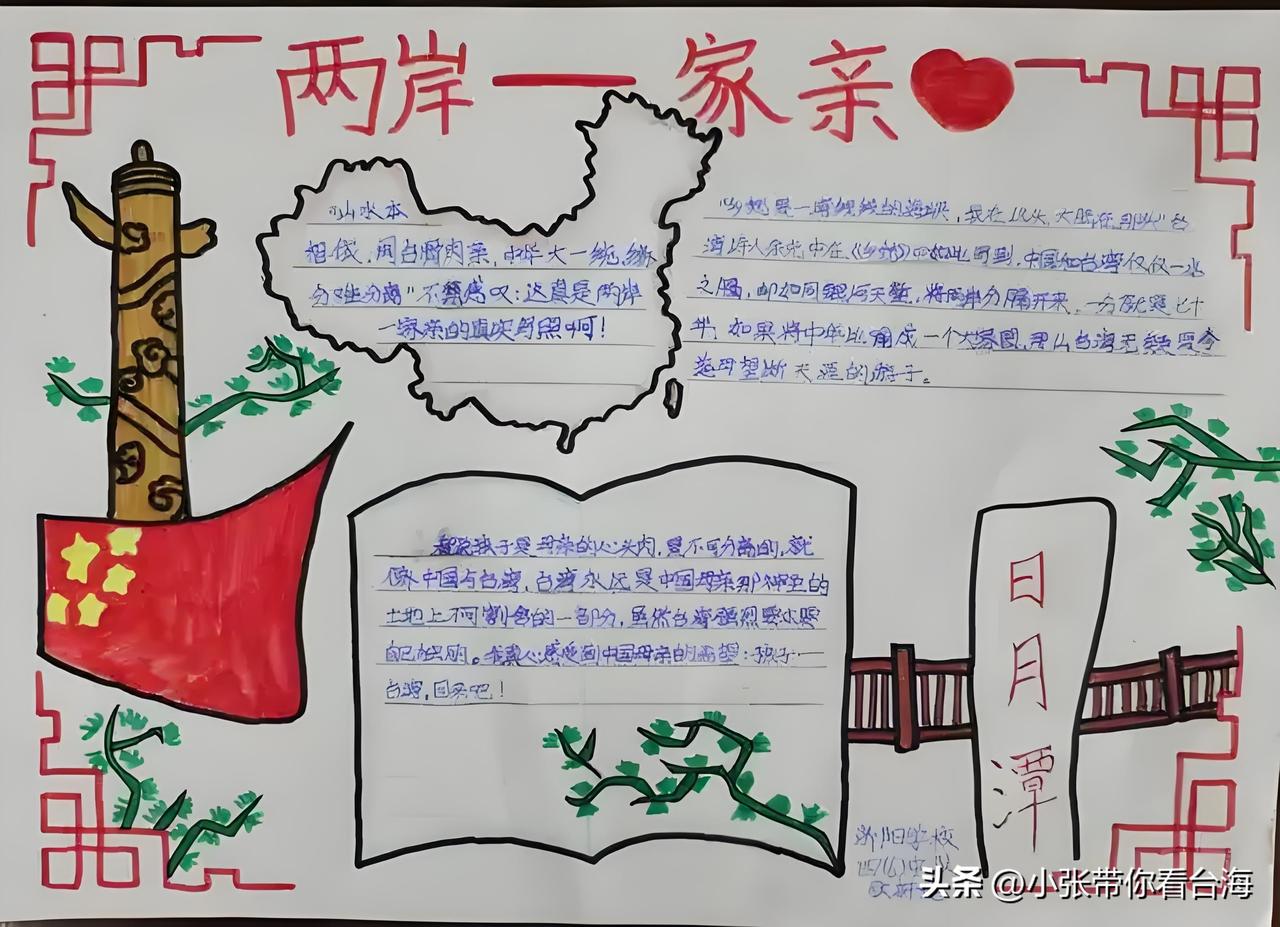 两岸一家亲
"山水本
相依,闽台骨肉亲,中华大一统,纵
分难分离"不禁感叹:这真是两岸
一家亲的真实写照啊!
"乡愁是一湾浅浅的海峡,我在这头,大陆在那头"台
湾诗人余光中在《乡愁》中如此写到,中国和台湾仅仅一水
之隔,却如同银河天堑,将两岸分隔开来,一分就是七十
年,如果将中华比喻成一个大家园,那么台湾无疑是令
慈母望断天涯的游子。
都说孩子是母亲的心头肉,是不可分离的,就
像中国与台湾,台湾永远是中国母亲那神圣的
土地上不可割舍的一部分,虽然台湾强烈要求要
自己的。我真心感受到中国母亲的希望:孩子一
台湾,回来吧!
日月潭
阳学校
头条 @小张带你看台海